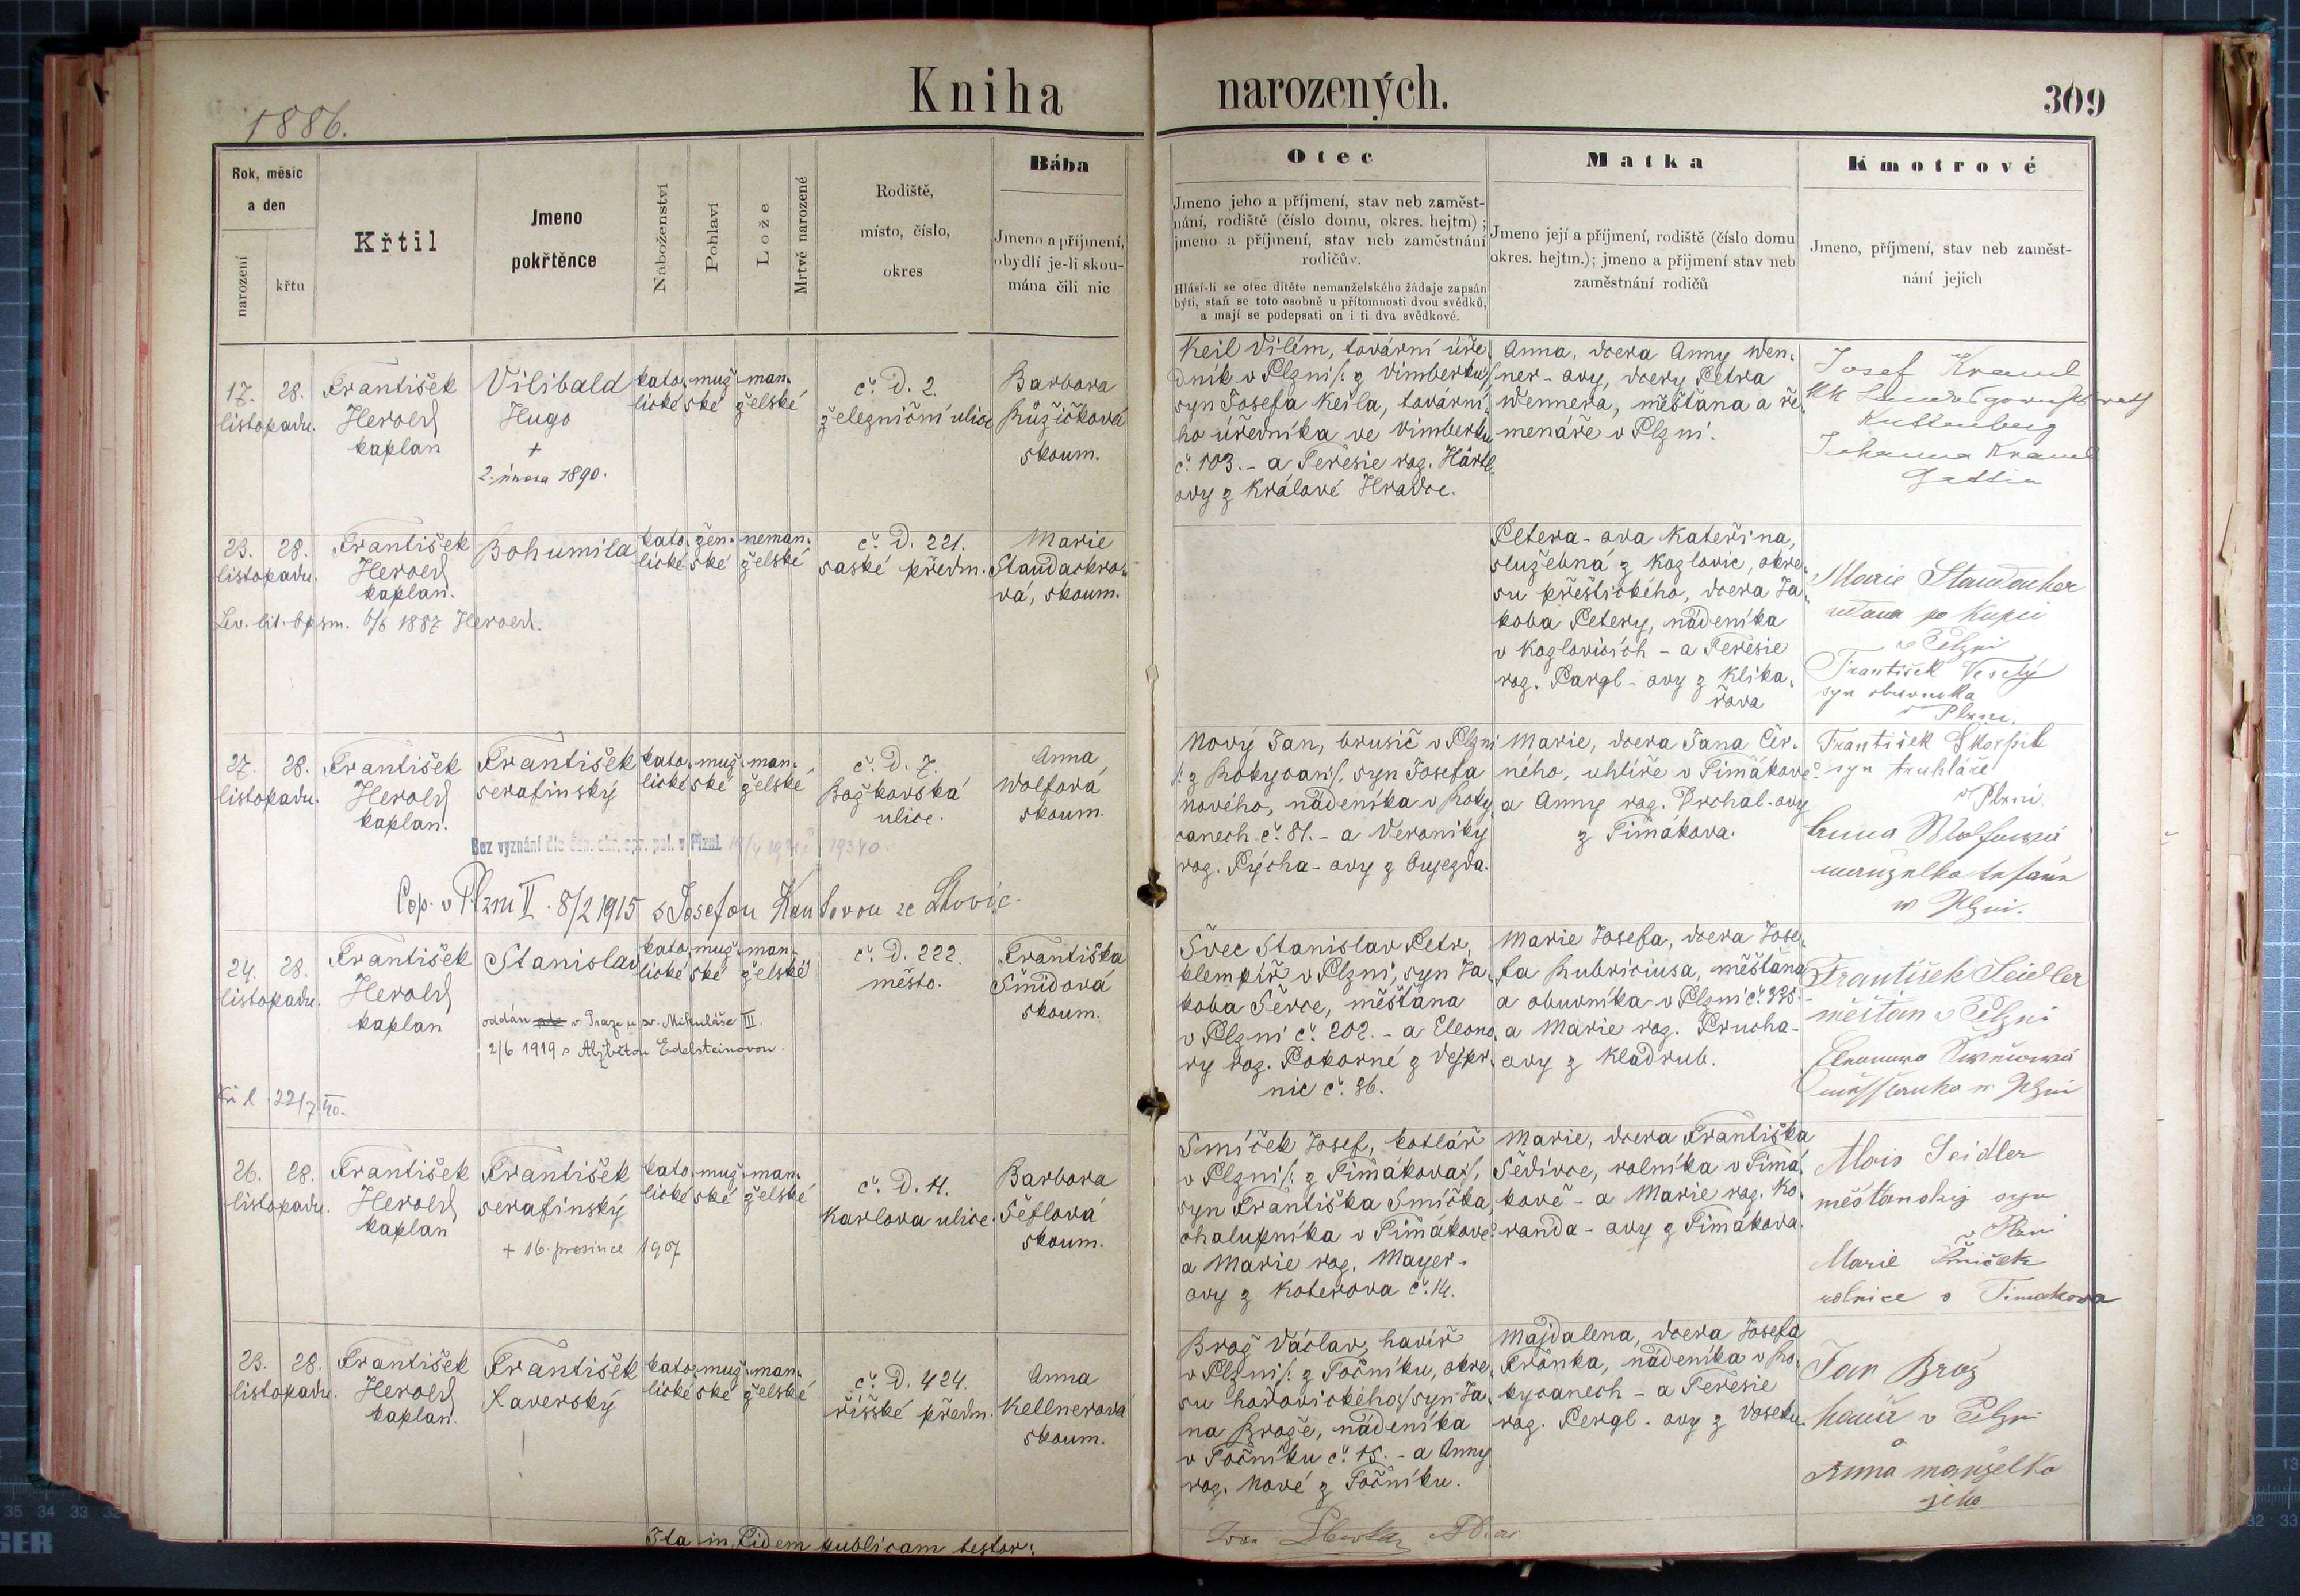 1886.
Kniha narozených.
309
Rok, měsíc
a den
narození
křtu
Křtil
Jmeno
pokřtěnce
Náboženství
Pohlaví
Lože
Mrtvě narozené
Rodiště,
místo, číslo,
okres
Bába
Jmeno a příjmení,
obydlí je-li skou-
mána čili nic
Otec
Jmeno jeho a příjmení, stav neb zaměst-
nání, rodiště (číslo domu, okres. hejtm) ;
jmeno a příjmení, stav neb zaměstnání
rodičův.
Hlásí-li se otec dítěte nemanželského žádaje zapsán
býti, staň se toto osobně u přítomnosti dvou svědků,
a mají se podepsati on i ti dva svědkové.
Matka
Jmeno její a příjmení, rodiště (číslo domu
okres. hejtm.); jmeno a příjmení stav neb
zaměstnání rodičů
Kmotrové
Jmeno, příjmení, stav neb zaměst-
nání jejich
17. 28.
listopadu.
František
Herold
kaplan
Vilibald
Hugo
+
2. února 1890.
kato-
lické
muž-
ské
man-
želské
č. D. 2.
železniční ulice
Barbora
Růžičková
skoum.
Keil Vilém, tovární úře-
dník v Plzni /: z Vimberku/
syn Josefa Keila, tovární-
ho úředníka ve Vimberku
č. 103. - a Teresie roz. Härtl-
ovy z Králové Hradce.
Anna, dcera Anny Wen-
ner-ovy, dcery Petra
Wennera, měšťana a ře-
menáře v Plzni.
Josef Kraul
Kuttenberg
Johanna Kraul
Gattin
23. 28.
listopadu.
František
Herold
kaplan.
Lev. lit. bpsm. 6/6 1887 Herold.
Bohumila
kato-
lické
žen-
ské
neman-
želské
č. D. 221.
saské předm.
Marie
Standackro-
vá, skoum.
Petera-ova Kateřina,
služebná z Kozlovic, okre-
su přeštického, dcera Ja-
koba Petery, nádeníka
v Kozlovicích - a Teresie
roz. Pargl-ovy z Klika-
řova
Marie Staudacher
udaua po kupci
v Plzni
František Veselý
syn obuvníka
v Plzni.
27. 28.
listopadu.
František
Herold
kaplan.
František
serafinský
kato-
lické
muž-
ské
man-
želské
č. D. 7.
Božkovská
ulice.
Anna
Wolfová
skoum.
Bez vyznání dle v Plzni 19340.
Cop. v Plzni II. 8/2 1915 s Josefou Kantovou ze Litovic.
Nový Jan, brusič v Plzni
/: z Rokycan:/, syn Josefa
Nového, nádeníka v Roky-
canech č. 81. - a Veroniky
roz. Pýcha-ovy z Oujezda.
Marie, dcera Jana Čer-
ného, uhlíře v Timákově
a Anny roz. Drchal-ovy
z Timákova.
František Skorpil
syn truhláře
v Plzni
Anna Wolfowá
w Plzni.
24. 28.
listopadu.
František
Herold
kaplan
Stanislav
oddán v Praze u sv. Mikuláše III.
2/6 1919 s Alžbětou Edelsteinovou.
22/7 40.
kato-
lické
muž-
ské
man-
želské
č. D. 222.
město.
Františka
Šmídová
skoum.
Švec Stanislav Petr,
klempíř v Plzni, syn Ja-
koba Ševce, měšťana
v Plzni č. 202. - a Eleono-
ry roz. Pokorné z Vejpr-
nic č. 36.
Marie Josefa, dcera Jose-
fa Rubriciusa, měšťana
a obuvníka v Plzni č. 335.
a Marie roz. Prucha-
ovy z Kladrub.
František Seidler
měšťan v Plzni
w Plzni
26. 28.
listopadu.
František
Herold
kaplan
František
serafinský
+ 16. prosince 1907
kato-
lické
muž-
ské
man-
želské
č. D. 4.
Karlova ulice.
Barbora
Šeflová
skoum.
Smíček Josef, kotlář
v Plzni /: z Timákova:/,
syn Františka Smíčka,
chalupníka v Timákově
a Marie roz. Mayer-
ovy z Koterova č. 14.
Marie, dcera Františka
Šedivce, rolníka v Timá-
kově - a Marie roz. Ko-
randa-ovy z Timákova.
Alois Seidler
měšťanský syn
v Plzni
Marie Smíček
rolnice s Timakova
23. 28.
listopadu.
František
Herold
kaplan.
František
Xaverský
kato-
lické
muž-
ské
man-
želské
č. D. 424.
říšské předm.
Anna
Kellnerová
skoum.
Brož Václav, havíř
v Plzni /: z Točníku, okre-
su hořovického:/ syn Ja-
na Brože, nádeníka
v Točníku č. 15. - a Anny
roz. Nové z Točníku.
Majdalena, dcera Josefa
Trönka, nádeníka v Ro-
kycanech - a Teresie
roz. Pergl-ovy z Voseku.
Jan Brož
havíř v Plzni
a
Anna manželka
jeho
Ita in fidem publicam testor: